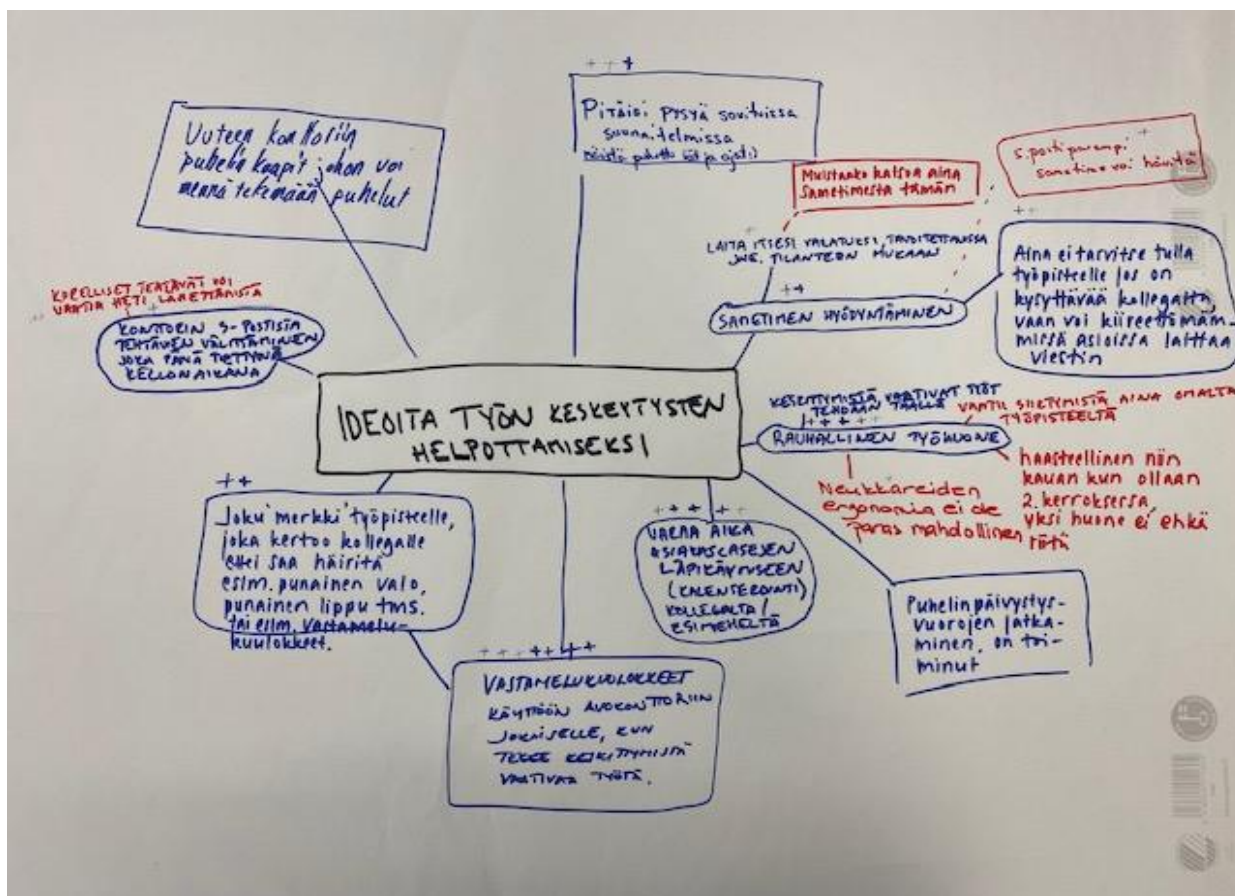 + + +
Uuteen konttoriin
puhelinkaapit johon voi
mennä tekemään puhelut
Pitäisi pysyä sovituissa
suunnitelmissa
Muistaako katsoa aina
sametimesta tämän
+
s.posti parempi
sametime voi hävitä
LAITA ITSESI VARATUKSI, TAVOITETTAVISSA
JNE. TILANTEEN MUKAAN
+ +
SAMETIMEN HYÖDYNTÄMINEN
+ +
Aina ei tarvitse tulla
työpisteelle jos on
kysyttävää kollegalta,
vaan voi kiireettömäm-
missä asioissa laittaa
viestin
KIIREELLISET TEHTÄVÄT VOI
VAATIA HETI LÄHETTÄMISTÄ
KONTTORIN S-POSTISTA
TEHTÄVIEN VÄLITTÄMINEN
JOKA PÄIVÄ TIETTYNÄ
KELLONAIKANA
IDEOITA TYÖN KESKEYTYSTEN
HELPOTTAMISEKSI
KESKITTYMISTÄ VAATIVAT TYÖT
TEHDÄÄN TÄÄLLÄ
VAATII SIIRTYMISTÄ AINA OMALTA
TYÖPISTEELTÄ
+ + + + +
RAUHALLINEN TYÖHUONE
Neukkareiden
ergonomia ei ole
paras mahdollinen
haasteellinen niin
kauan kun ollaan
2. kerroksessa,
yksi huone ei ehkä
riitä
+ +
Joku merkki työpisteelle,
joka kertoo kollegalle
ettei saa häiritä
esim. punainen valo,
punainen lippu tms.
tai esim. vastamelu-
kuulokkeet.
+ + + + +
VARAA AIKA
ASIAKASCASEJEN
LÄPIKÄYMISEEN
(KALENTEROINTI)
KOLLEGALTA/
ESIMIEHELTÄ
Puhelinpäivystys-
vuorojen jatka-
minen, on toi-
minut
+ + + + + + +
VASTAMELUKUULOKKEET
KÄYTTÖÖN AVOKONTTORIIN
JOKAISELLE, KUN
TEKEE KESKITTYMISTÄ
VAATIVAA TYÖTÄ.